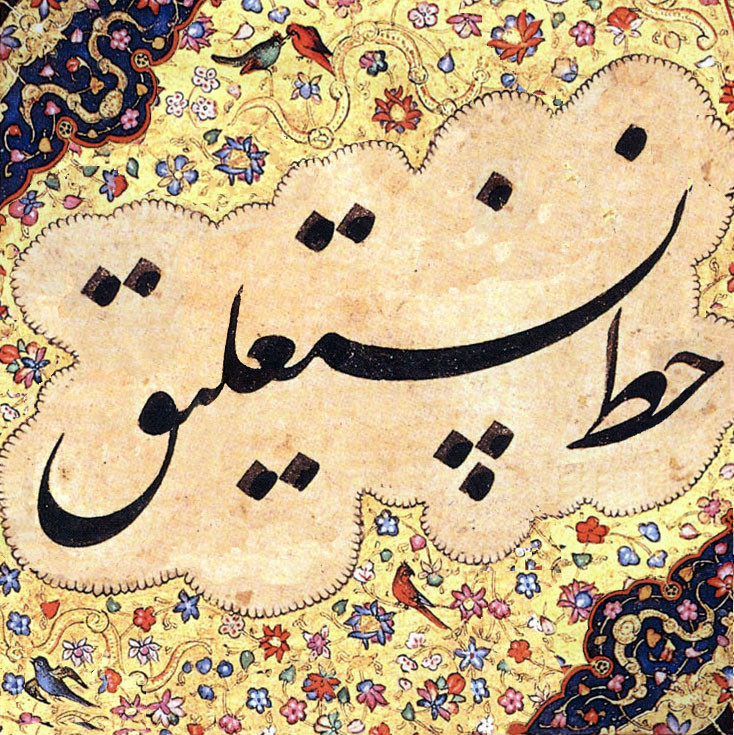 خط نستعلیق